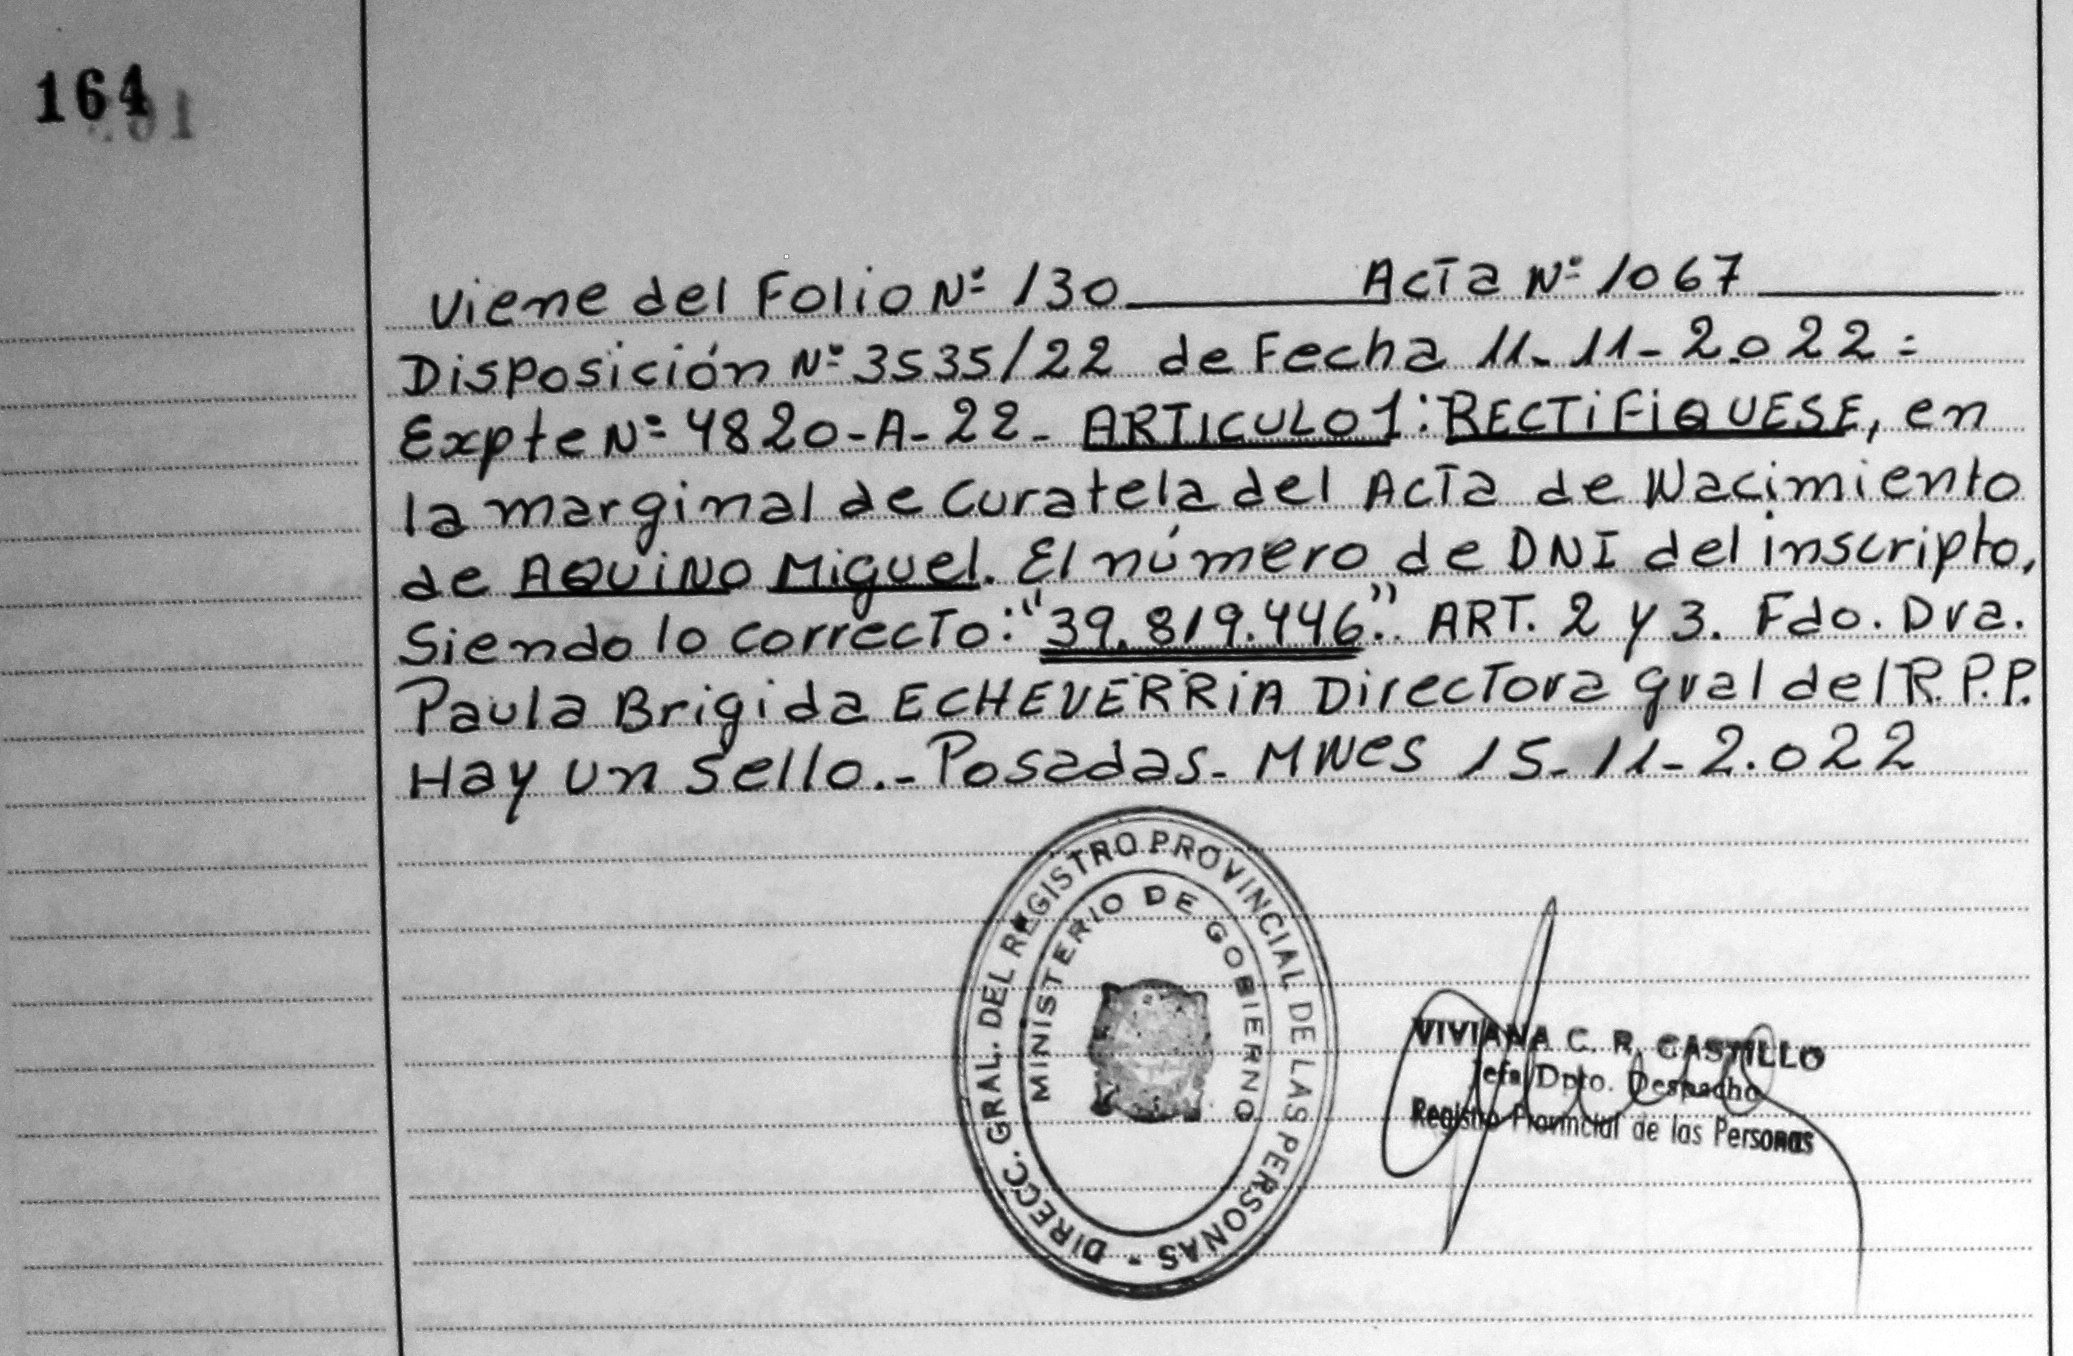 164
Viene del Folio Nº 130 Acta Nº 1067
Disposición Nº 3535/22 de Fecha 11-11-2.022=
Expte Nº 4820-A-22- ARTICULO 1: RECTiFiQUESE, en
la marginal de Curatela del Acta de Nacimiento
de AQUiNO Miguel. El número de DNI del inscripto,
Siendo lo correcto: "39.819.446". ART. 2 y 3. Fdo. Dra.
Paula Brigida ECHEVERRiA Directora gral del R.P.P.
Hay un Sello.- Posadas- MNes 15-11-2.022
DIRECC. GRAL. DEL REGISTRO PROVINCIAL DE LAS PERSONAS -
MINISTERIO DE GOBIERNO
VIVIANA C. R. CASTILLO
Jefa Dpto. Despacho
Registro Provincial de las Personas